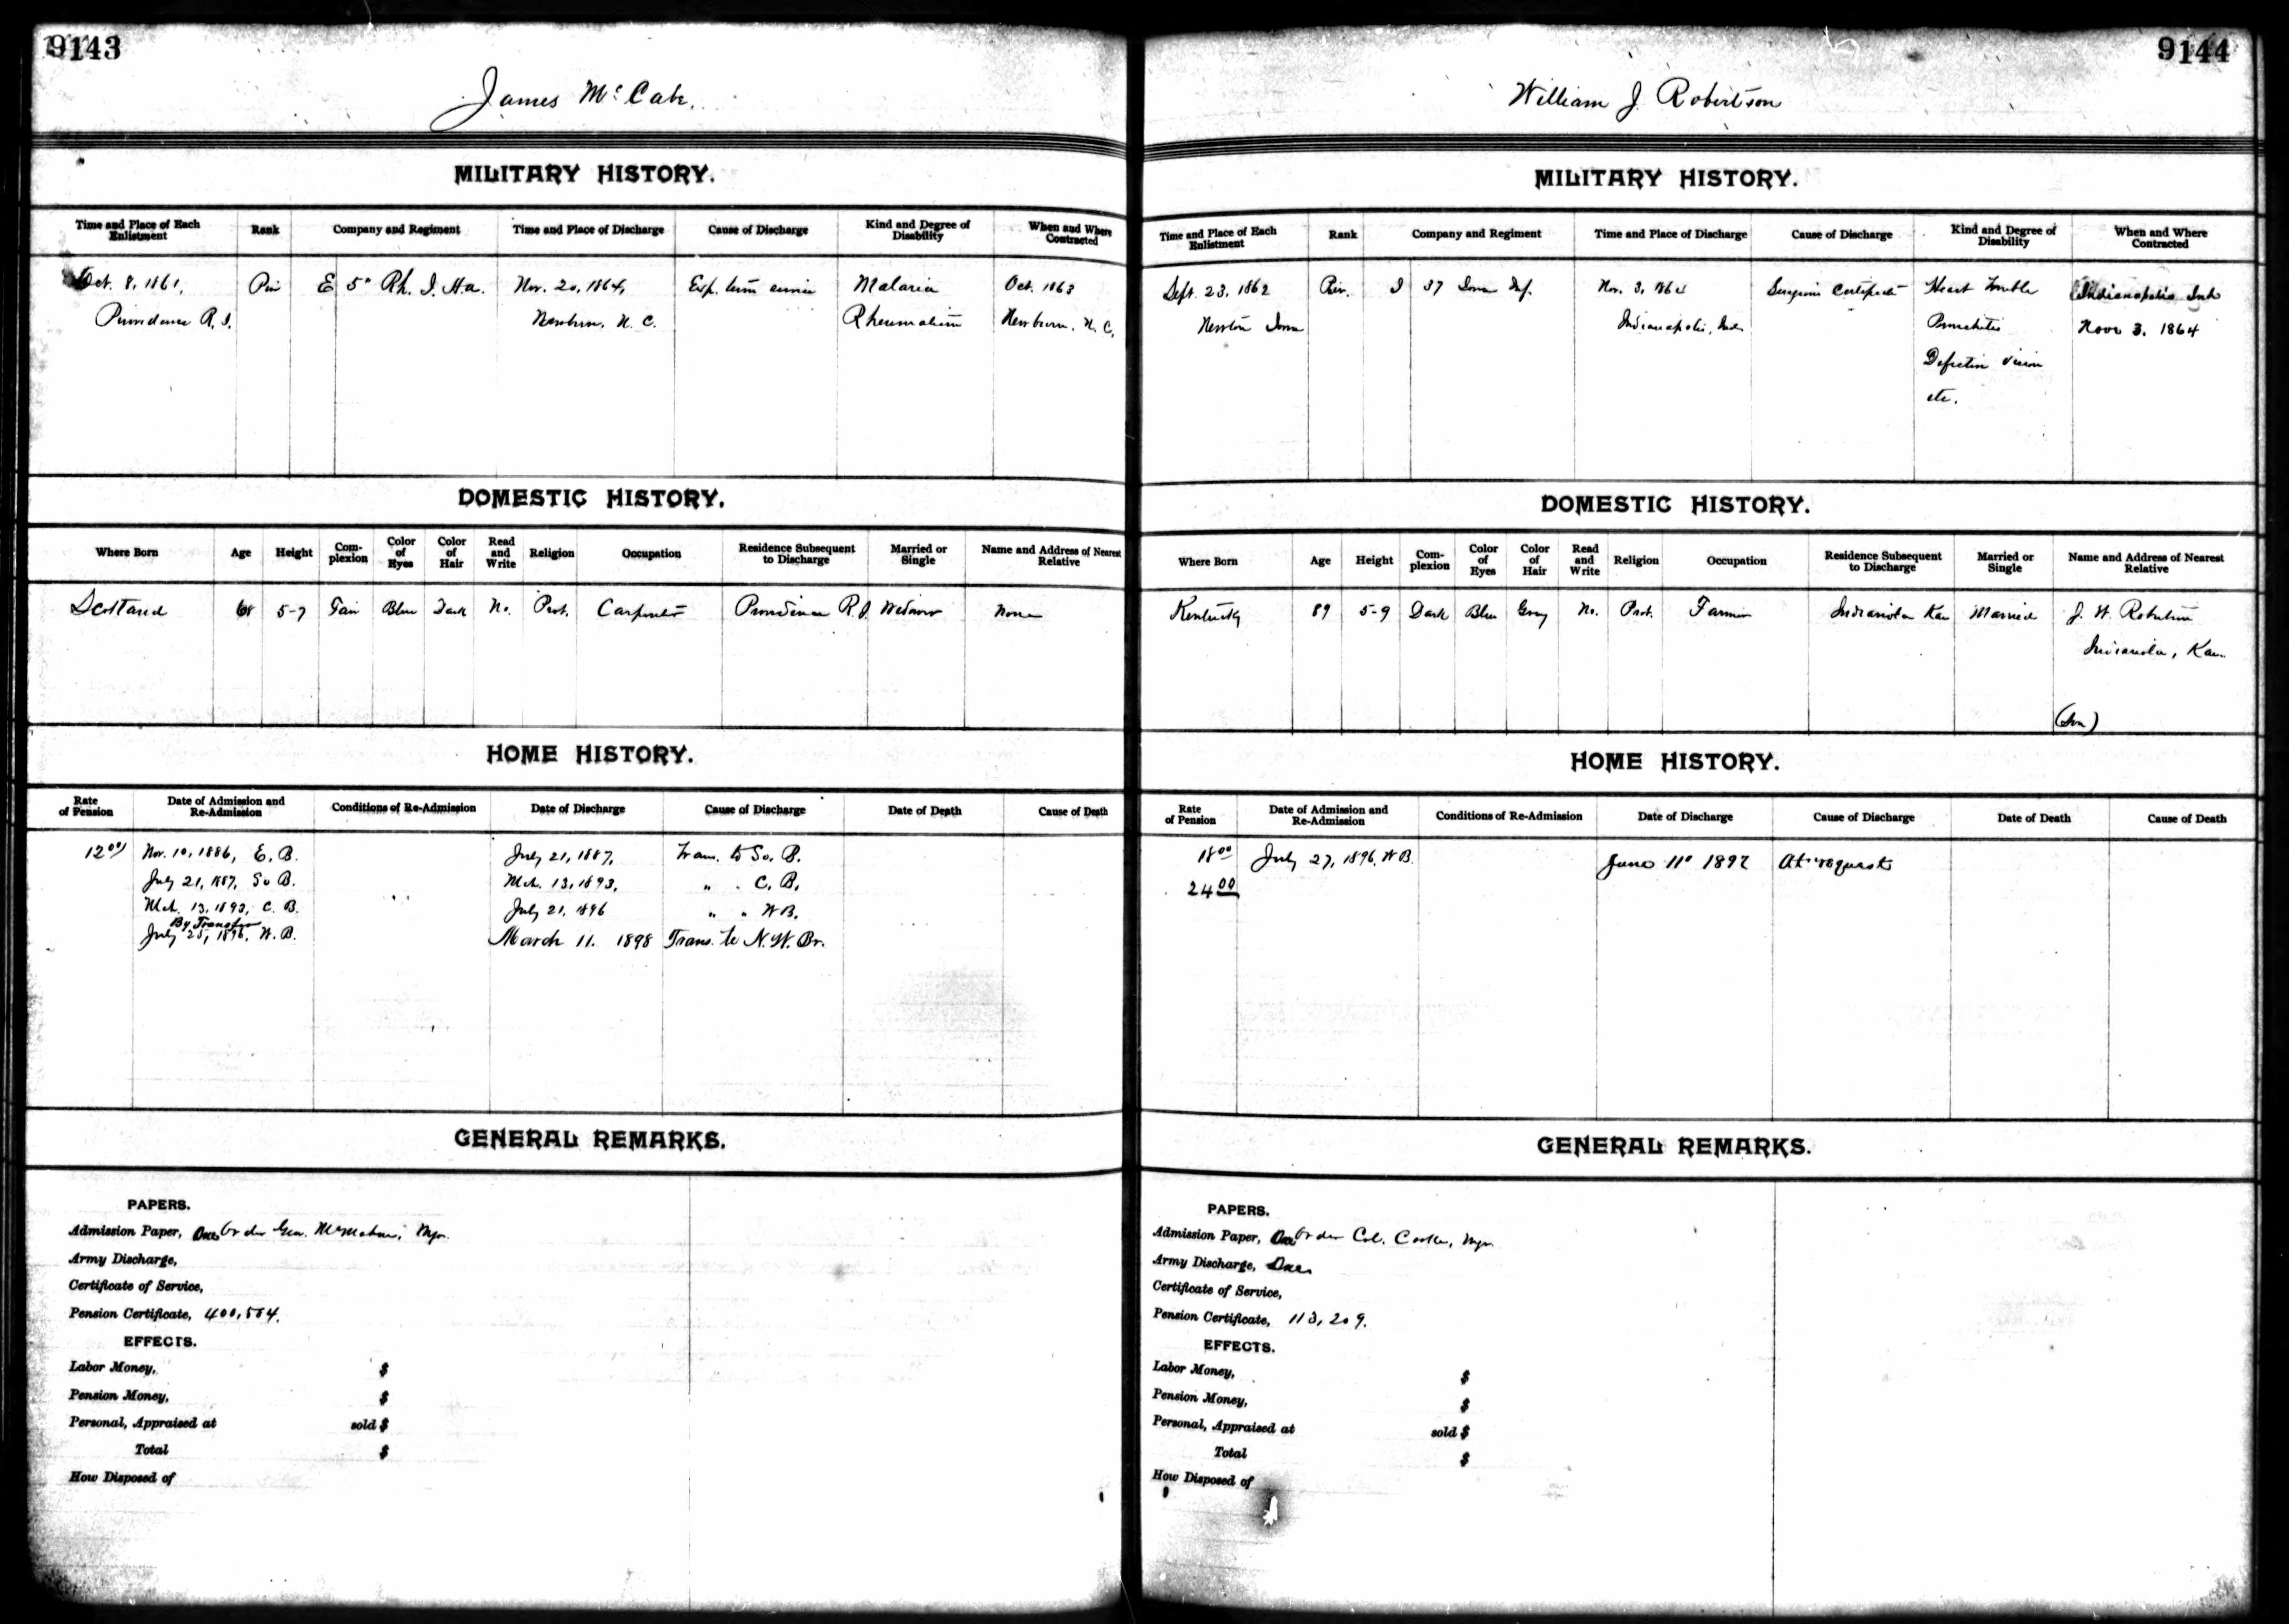 9143
James McCabe.
MILITARY HISTORY.
Time and Place of Each Enlistment
Rank
Company and Regiment
Time and Place of Discharge
Cause of Discharge
Kind and Degree of Disability
When and Where Contracted
Oct. 8, 1861,
Priv
E 5" Rh. I. H.a.
Nov. 20, 1864,
Exp. term service
Malaria
Oct. 1863
Providence R.I.
Newbern, N. C.
Rheumatism
Newbern, N. C.
DOMESTIC HISTORY.
Where Born
Age
Height
Com-plexion
Color of Eyes
Color of Hair
Read and Write
Religion
Occupation
Residence Subsequent to Discharge
Married or Single
Name and Address of Nearest Relative
Scotland
68
5-7
Fair
Blue
Dark
No.
Prot.
Carpenter
Providence R.I.
Widower
None
HOME HISTORY.
Rate of Pension
Date of Admission and Re-Admission
Conditions of Re-Admission
Date of Discharge
Cause of Discharge
Date of Death
Cause of Death
12 00
Nov. 10, 1886, E. B.
July 21, 1887,
Tran. to So. B.
July 21, 1887, So B.
Mch. 13, 1893,
" " C. B.
Mch. 13, 1893, C. B.
July 21, 1896
" " W B.
By Transfer
July 25, 1896, W. B.
March 11. 1898
Trans. to N. W. Br.
GENERAL REMARKS.
PAPERS.
Admission Paper, One Order Gen. McMahon, Mgr.
Army Discharge,
Certificate of Service,
Pension Certificate, 400,554.
EFFECTS.
Labor Money, $
Pension Money, $
Personal, Appraised at sold $
Total $
How Disposed of
9144
William J. Robertson
MILITARY HISTORY.
Time and Place of Each Enlistment
Rank
Company and Regiment
Time and Place of Discharge
Cause of Discharge
Kind and Degree of Disability
When and Where Contracted
Sept. 23, 1862
Priv.
I 37 Iowa Inf.
Nov. 3, 1864
Surgeons Certificate
Heart Trouble
Indianapolis Ind
Newton Iowa
Indianapolis, Ind.
Bronchitis
Nov. 3. 1864
Defective vision
etc.
DOMESTIC HISTORY.
Where Born
Age
Height
Com-plexion
Color of Eyes
Color of Hair
Read and Write
Religion
Occupation
Residence Subsequent to Discharge
Married or Single
Name and Address of Nearest Relative
Kentucky
89
5-9
Dark
Blue
Gray
No.
Prot.
Farmer
Indianola Kan
Married
J. W. Robertson
Indianola, Kan.
(Son)
HOME HISTORY.
Rate of Pension
Date of Admission and Re-Admission
Conditions of Re-Admission
Date of Discharge
Cause of Discharge
Date of Death
Cause of Death
18 00
July 27, 1896, W B.
June 11" 1897
At request
24 00
GENERAL REMARKS.
PAPERS.
Admission Paper, One Order Col. Cooke, Mgr.
Army Discharge, One
Certificate of Service,
Pension Certificate, 113,209.
EFFECTS.
Labor Money, $
Pension Money, $
Personal, Appraised at sold $
Total $
How Disposed of